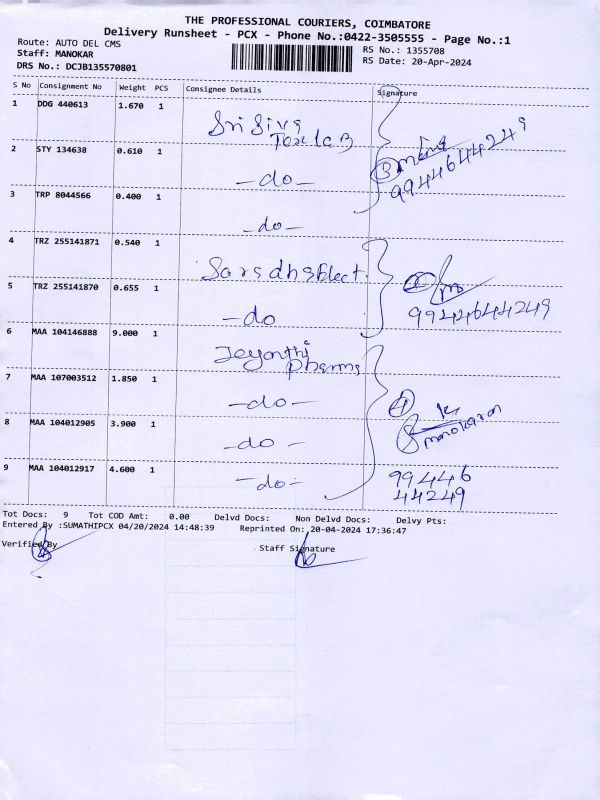 THE PROFESSIONAL COURIERS, COIMBATORE
Delivery Runsheet - PCX - Phone No.:0422-3505555 - Page No.:1
Route: AUTO DEL CMS RS No.: 1355708
Staff: MANOKAR RS Date: 20-Apr-2024
DRS No.: DCJB135570801
S No Consignment No Weight PCS Consignee Details Signature
1 DDG 440613 1.670 1 Sri Siva
2 STY 134638 0.610 1 -do- 3 9944644249
3 TRP 8044566 0.400 1 -do-
4 TRZ 255141871 0.540 1
5 TRZ 255141870 0.655 1 -do 9944644249
6 MAA 104146888 9.000 1 Jeyanthi Pharma
7 MAA 107003512 1.850 1 -do- 4
8 MAA 104012905 3.900 1 -do- manokaran
9 MAA 104012917 4.600 1 -do- 99446
44249
Tot Docs: 9 Tot COD Amt: 0.00 Delvd Docs: Non Delvd Docs: Delvy Pts:
Entered By :SUMATHIPCX 04/20/2024 14:48:39 Reprinted On: 20-04-2024 17:36:47
Verified By Staff Signature